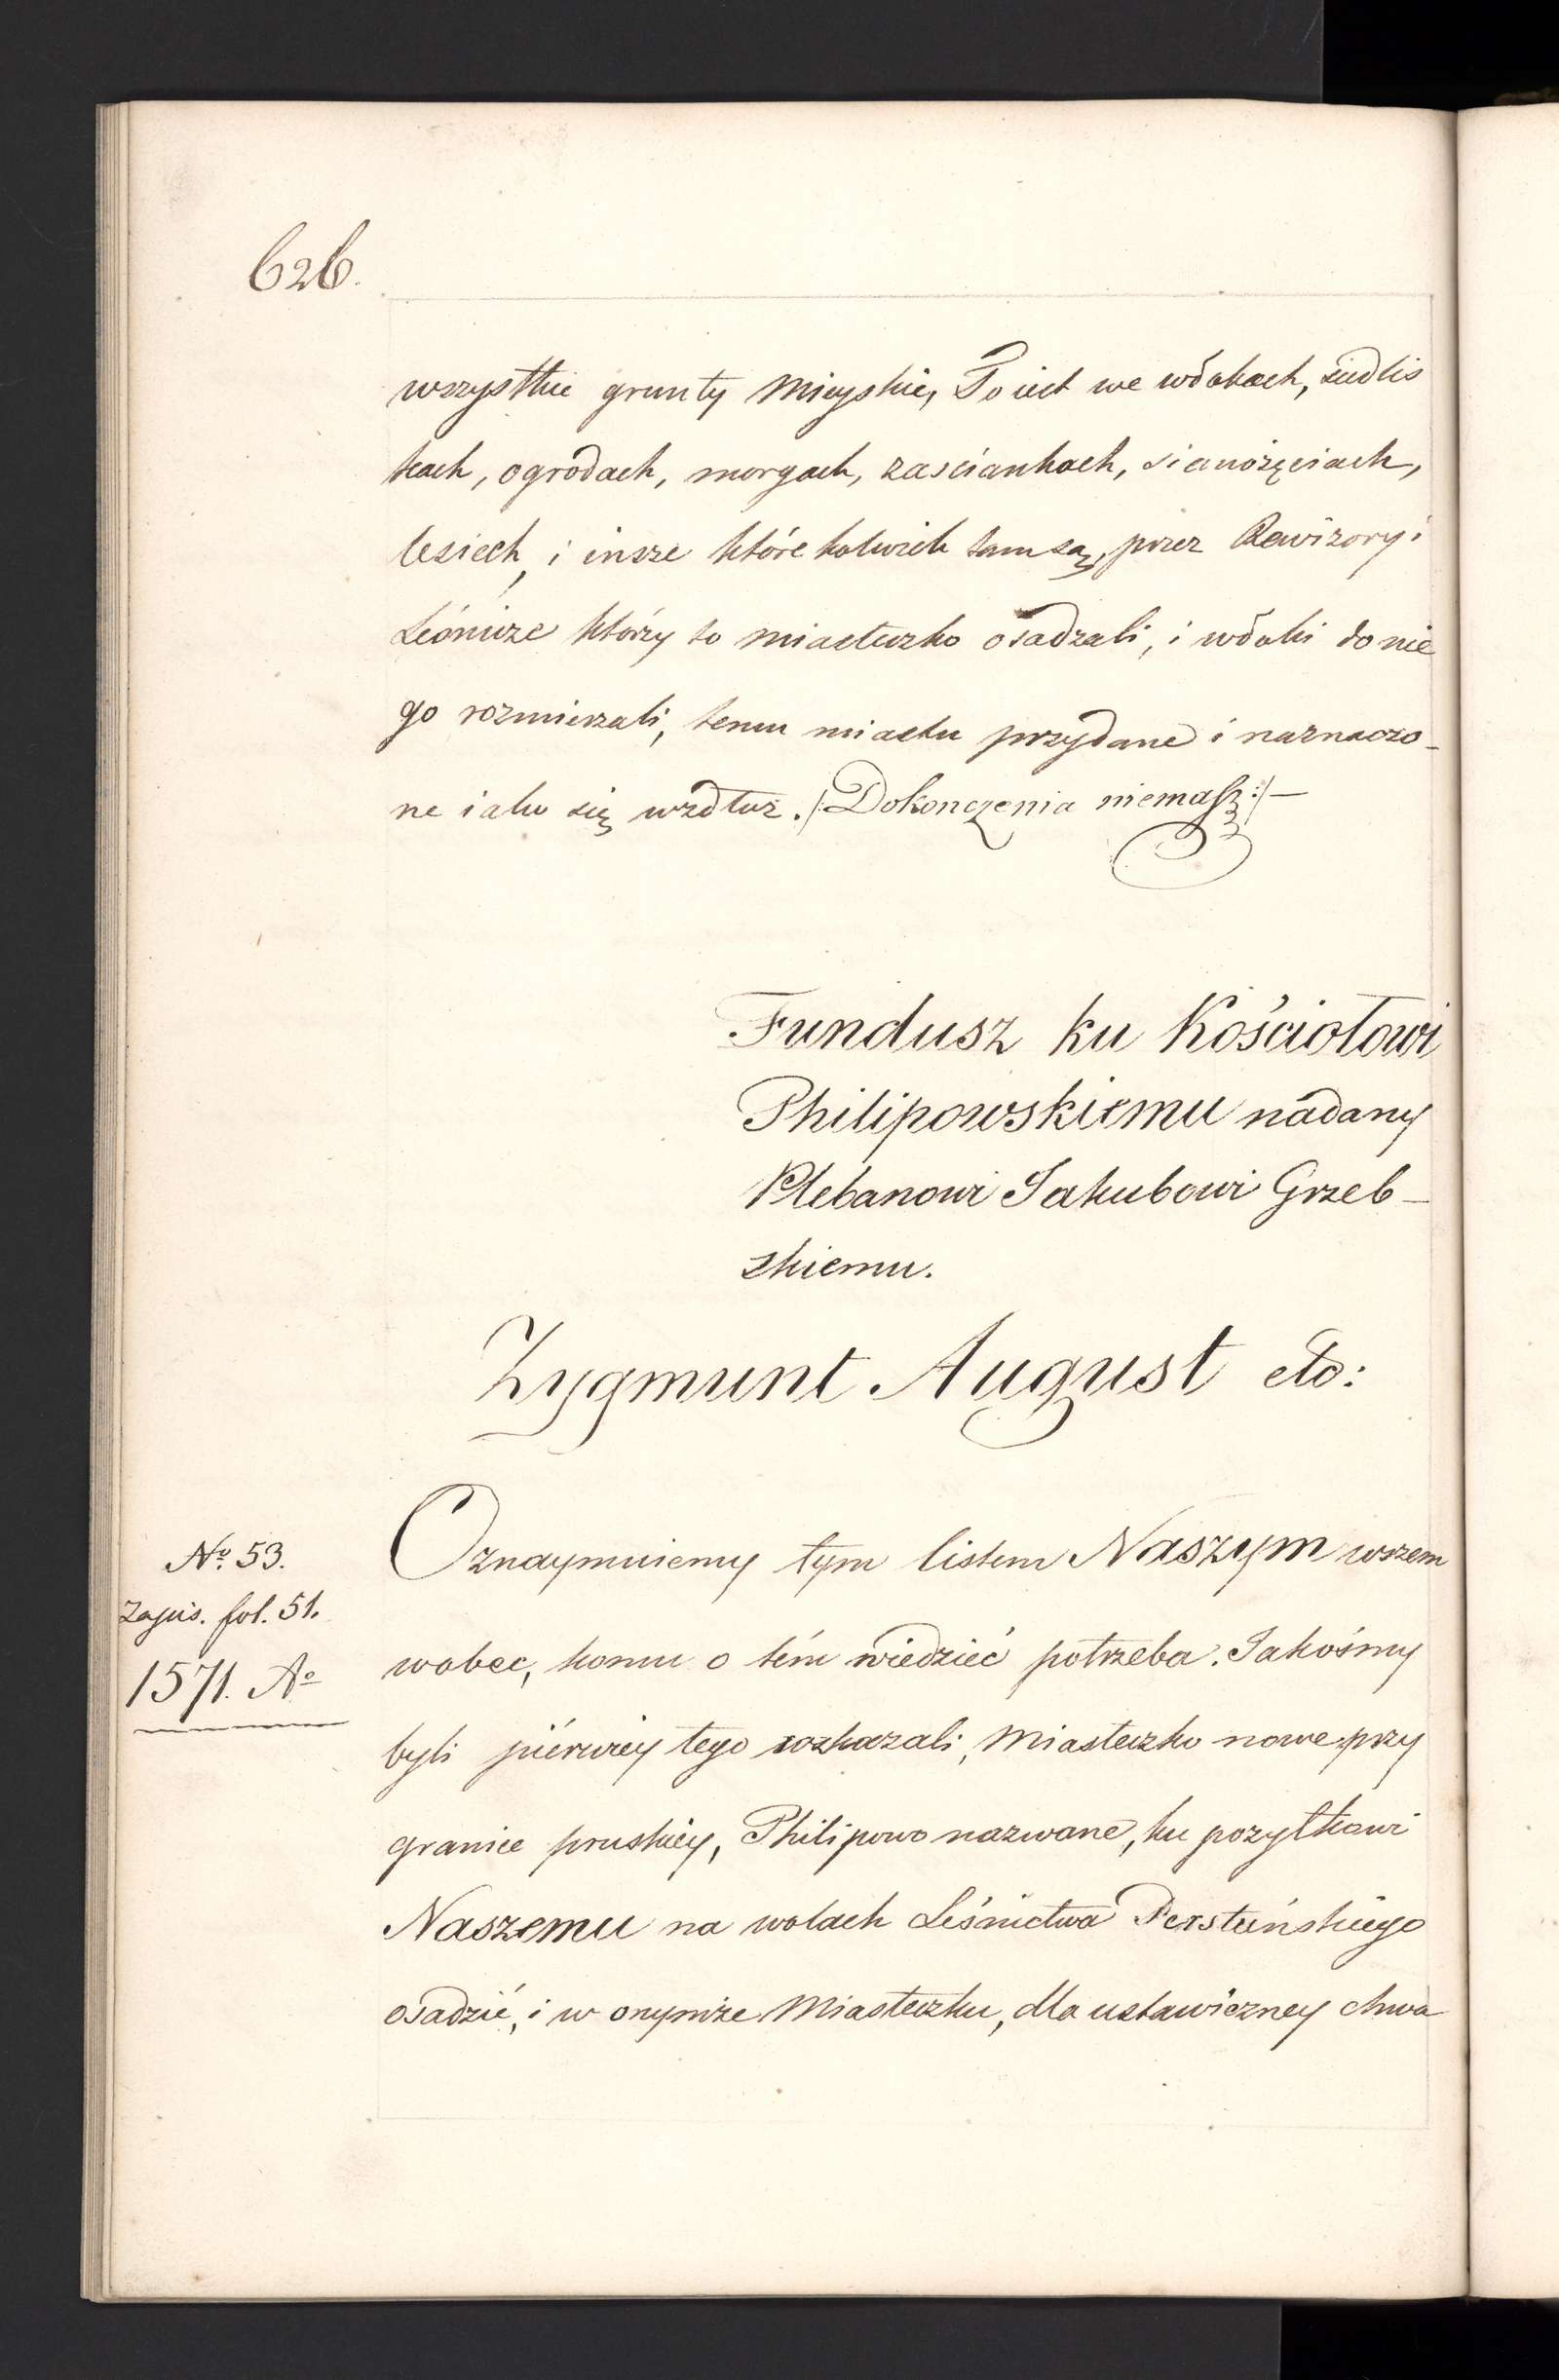 626.
wszystkie grunty Mieyskie, To iest we włokach, siedlis
kach, ogrodach, morgach, zasciankach, sianożęciach,
lesiech, i insze które kolwiek tam są, przez Rewizory i
Leśnicze którzy to miasteczko osadzali, i włoki do nie
go rozmierzali, temu miastu przydane i naznaczo-
ne iako się wzdłuż. /:Dokonczenia niemasz:/ —
Fundusz ku Kościołowi
Philipowskiemu nadany
Plebanowi Jakubowi Grzeb-
skiemu.
Zygmunt August etc:
No. 53.
Zapis. fol. 51.
1571. Ao
Oznaymuiemy tym listem Naszym wszem
wobec, komu o tém wiedzieć potrzeba. Jakośmy
byli piérwiey tego rozkazali, Miasteczko nowe przy
granice pruskiey, Philipowo nazwane, ku pozytkowi
Naszemu na wolach Leśnictwa Perstuńskiego
osadzić, i w onymże Miasteczku, dla ustawiczney chwa